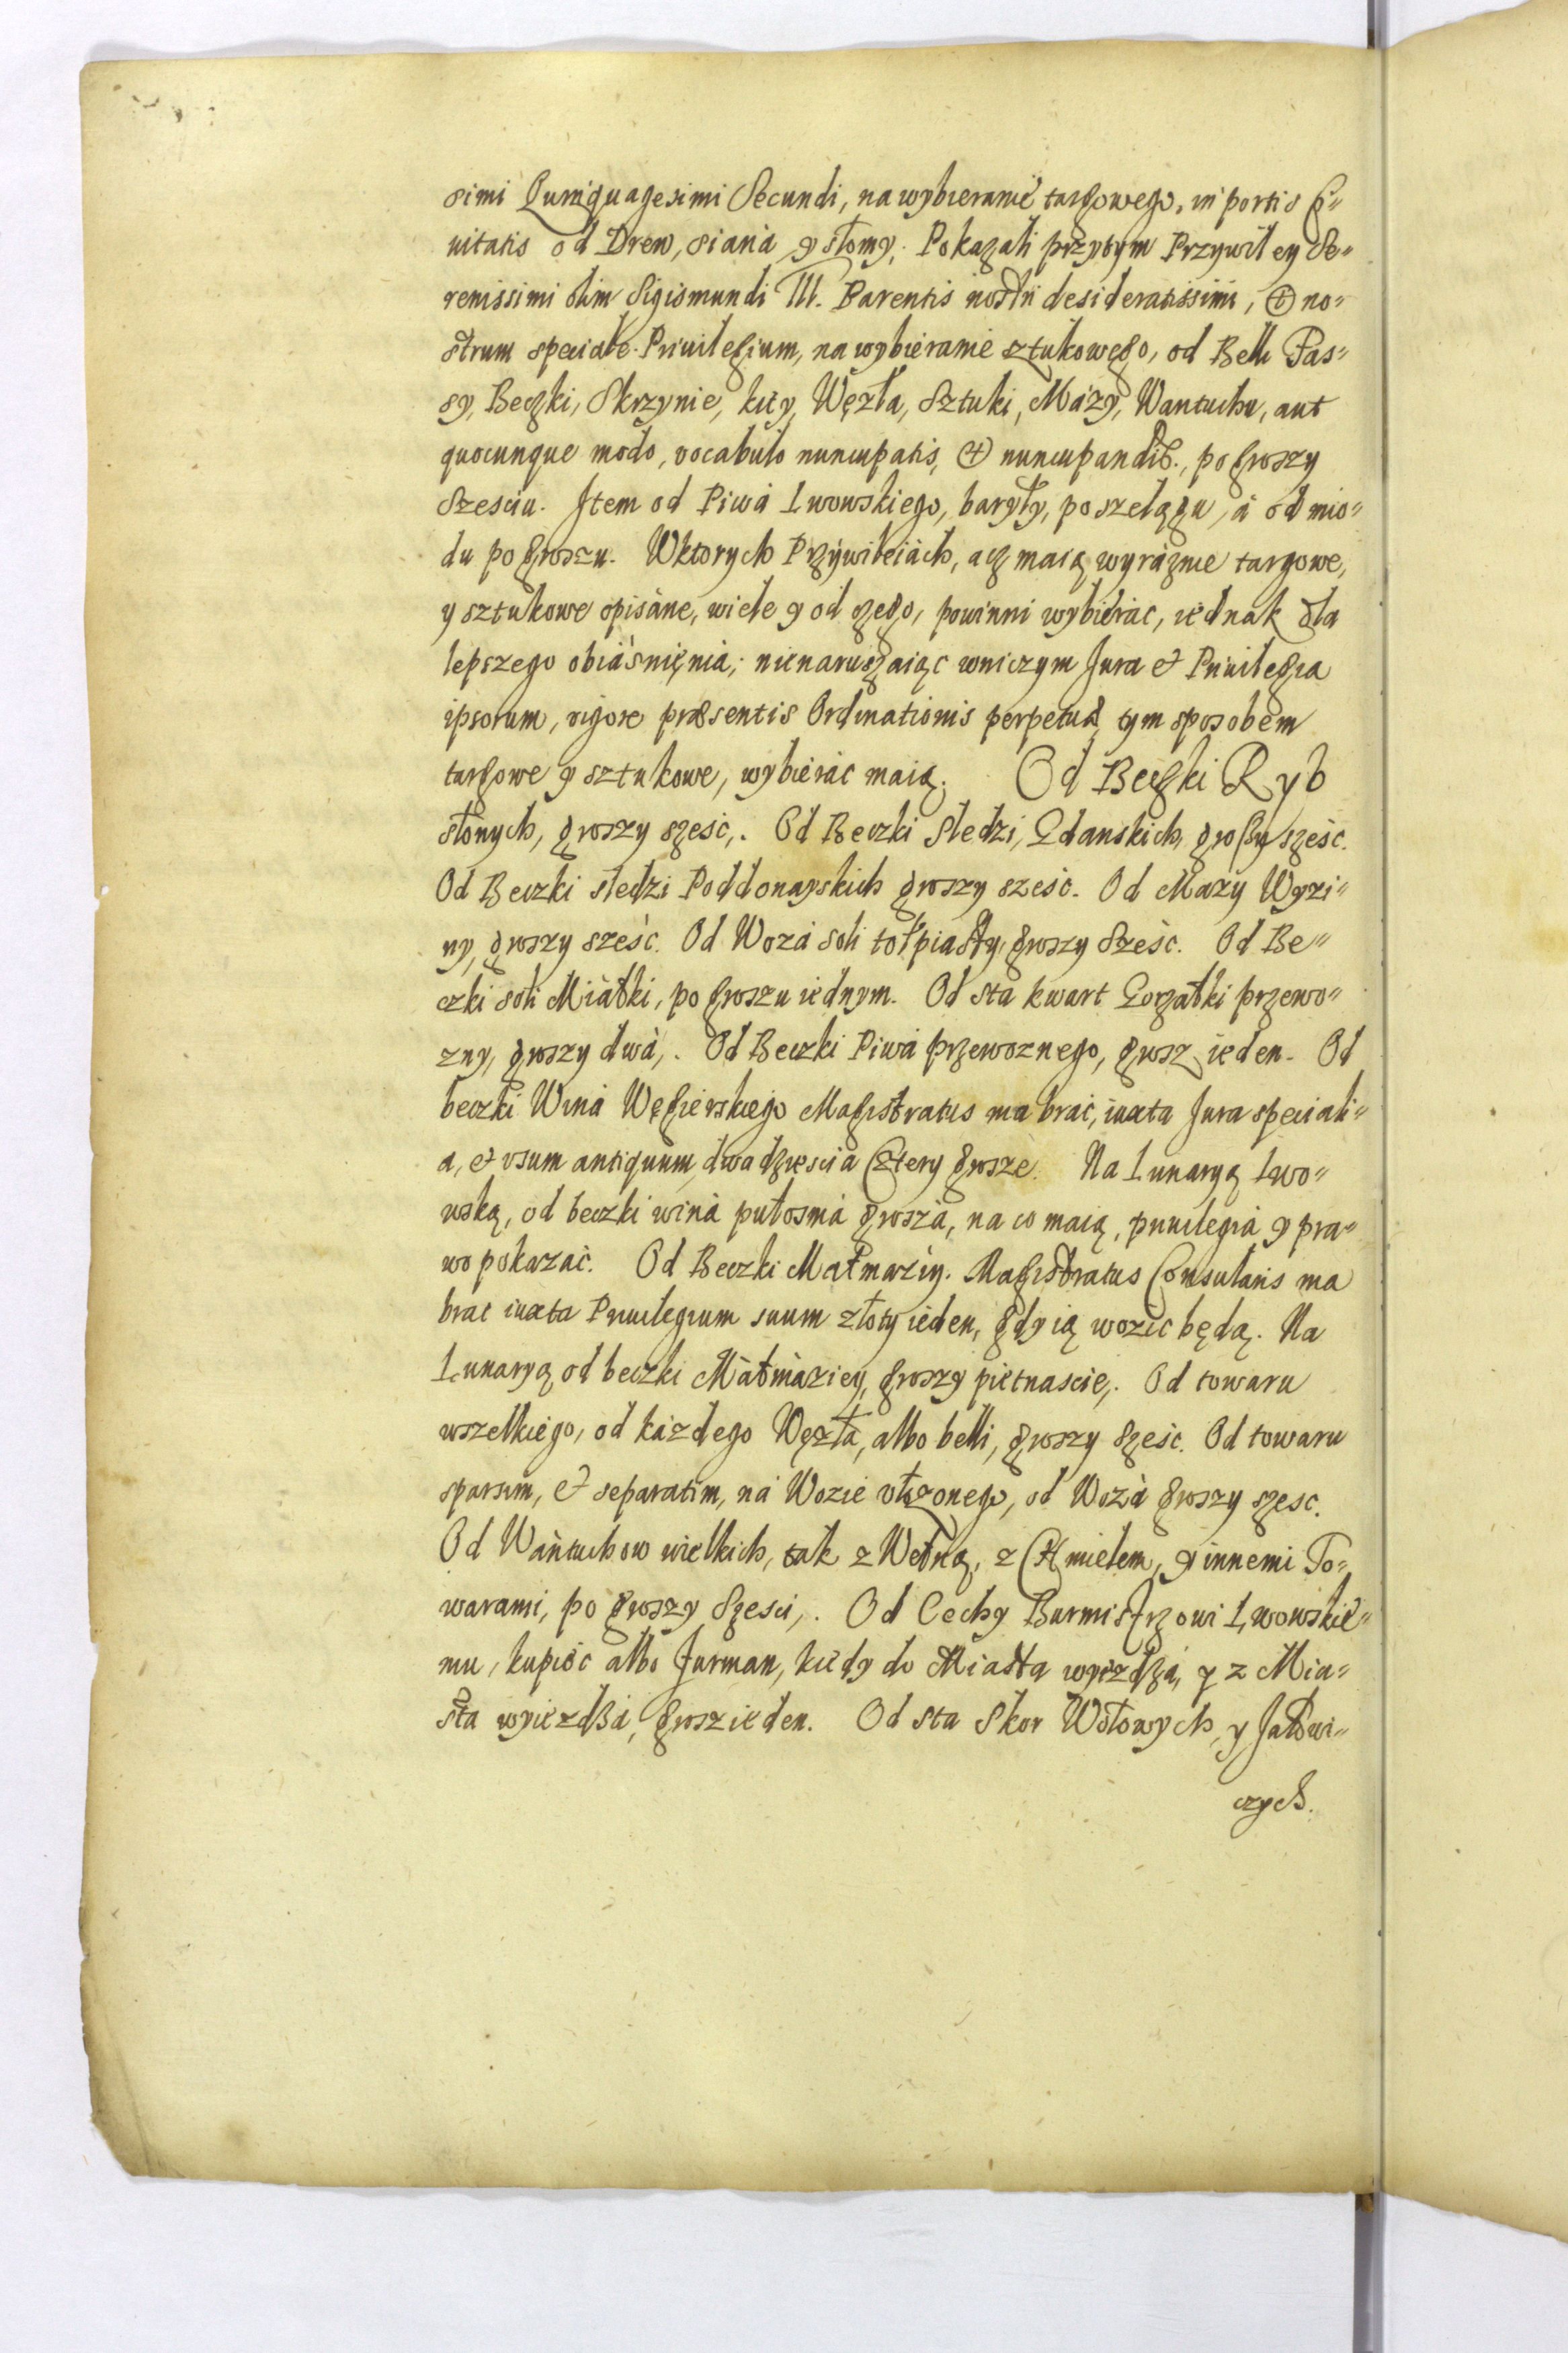 simi Quinquagesimi Secundi, na wybieranie targowego, in portis Ci=
uitatis od Drew, siana y słomy. Pokazali przytym Przywiley Se=
renissimi olim Sigismundi III. Parentis nostri desideratissimi, et no=
strum speciale Priuilegium, na wybieranie sztukowego, od Belli Fas=
sy, Beczki, Skrzynie, kity, Węzła, Sztuki, Máży, Wantucha, aut
quocunque modo, vocabulo nuncupatis, et nuncupandis, po groszy
Szesciu. Item od Piwá Lwowskiego, baryły, po szelągu, á od mio=
du po groszu. Wktorych Przywileiách, acz maią wyráznie targowe,
y sztukowe opisáne, wiele y od czego, powinni wybieráć, iednak dla
lepszego obiáśnięnia, nienaruszaiąc wniczym Jura et Priuilegia
ipsorum, vigore præsentis Ordinationis perpetuæ, tym sposobem
targowe y sztukowe, wybieráć maią. Od Beczki Ryb
słonych, groszy sześć,. Od Beczki Sledzi, Gdanskich, groszy sześć.
Od Beczki sledzi Poddonayskich groszy sześć. Od Máży Wyzi=
ny, groszy sześć. Od Wozá soli tołpiásty, groszy Sześć. Od Be=
czki soli Miáłki, po groszu iednym. Od sta kwart Gorzałki przewo=
zny, groszy dwá,. Od Beczki Piwá przewoznego, grosz ieden. Od
beczki Winá Węgierskiego Magistratus ma brać, iuxta Jura speciali=
a, et vsum antiquum, dwadzieścia Cztery grosze. Na Lunaryą Lwo=
wską, od beczki winá pułosmá groszá, na co maią, priuilegiá y pra=
wo pokazać. Od Beczki Małmazÿ. Magistratus Consularis ma
brać iuxta Priuilegium suum złoty ieden, gdy ią wozic będą. Na
Lunaryą od beczki Máłmáziey, groszy piętnascie,. Od towaru
wszelkiego, od każdego Węzła, albo belli, groszy sześć. Od towaru
sparsim, et separatim, ná Wozie vłożonego, od Wozá groszy szesc.
Od Wántuchow wielkich, tak z Wełną, z Chmielem, y innemi To=
warami, po groszy Szesci,. Od Cechy Burmistrzowi Lwowskie=
mu, kupiec albo Furman, kiedy do Miasta wyiezdza, y z Mia=
sta wyiezdża, grosz ieden. Od sta Skor Wołowych, y Jałowi=
czych.